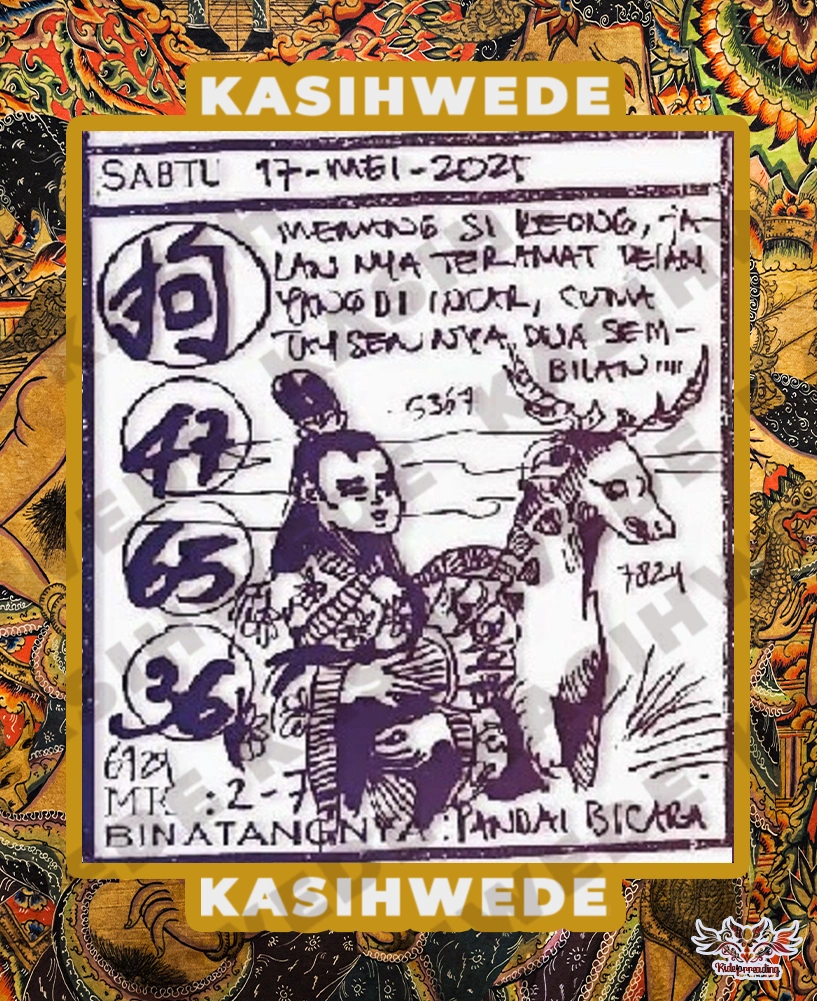 KASIHWEDE
SABTU 17-MEI-2025
MEMANG SI KEONG, JA-
LAN NYA TERAMAT PELAN
YANG DI INCAR, CUMA
SEM-
BILAN
狗
5367
47
65
7824
36
6929
MK : 2-7
BINATANGNYA : PANDAI BICARA
KASIHWEDE